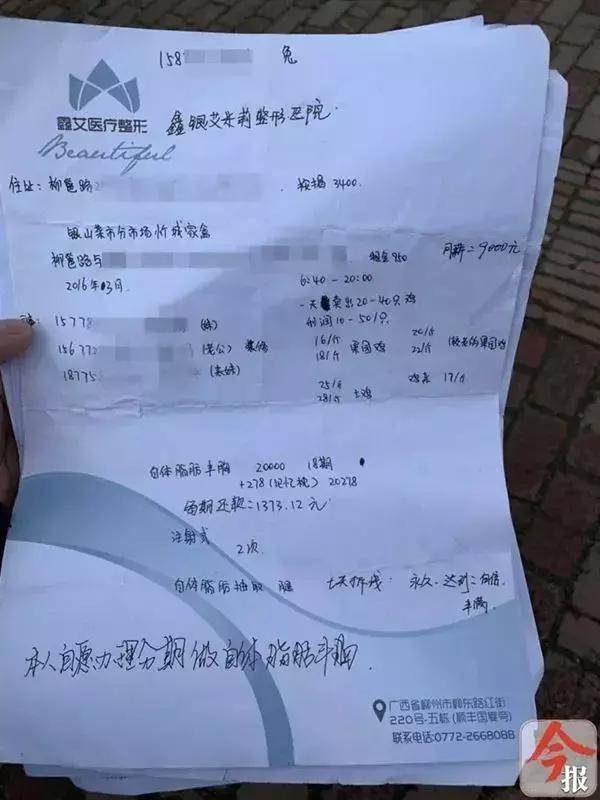 158 兔
鑫艾医疗整形
鑫银艾芙莉整形医院.
Beautiful
住址: 柳邕路 3400
银山菜市分市场 忻城家禽
柳邕路与 租金950 月薪=9000元
2016年03月. 6:40-20:00
一天卖出20-40只鸡
15778 (妹) 利润10-50/只
156772 (老公) 16/斤 果园鸡 20/斤
18/斤 22/斤 果园鸡)
18775
25/斤 鸡 17/斤
28/斤 土鸡
自体脂肪丰胸 20000 18期
+278 20278
每期还款=1373.12元
注射式 2次
自体脂肪抽取 腿 七天拆线. 永久. 达到:
丰满
本人自愿办理分期做自体脂肪丰胸.
广西省柳州市柳东路红街
220号-五栋 (顺丰国宴旁)
联系电话:0772-2668088
今报